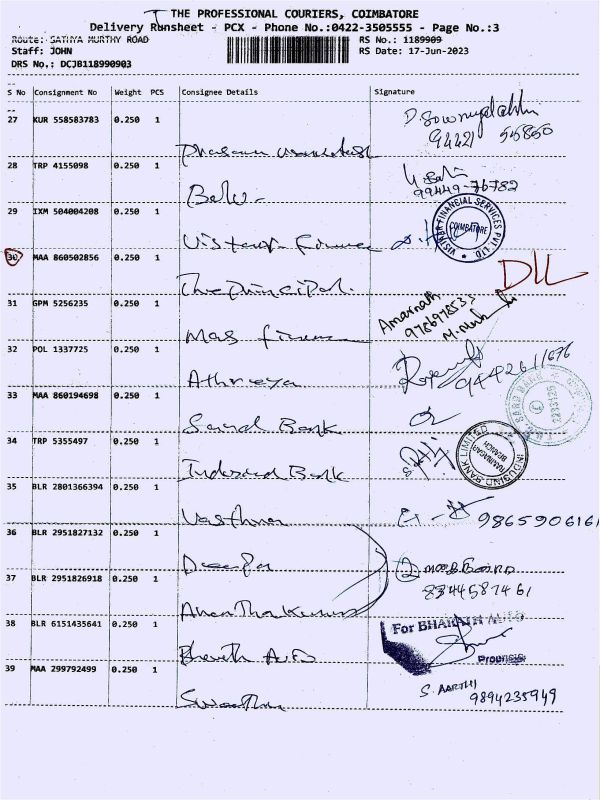 THE PROFESSIONAL COURIERS, COIMBATORE
Delivery Runsheet - PCX - Phone No.:0422-3505555 - Page No.:3
Route: SATHYA MURTHY ROAD RS No.: 1189909
Staff: JOHN RS Date: 17-Jun-2023
DRS No.: DCJB118990903
S No Consignment No Weight PCS Consignee Details Signature
27 KUR 558583783 0.250 1
94421 55850
28 TRP 4155098 0.250 1
Balu 99449-76782
29 IXM 504004208 0.250 1
Vistaar Finance VISTAAR FINANCIAL SERVICES PVT LTD. COIMBATORE
30 MAA 860502856 0.250 1
The Principal. DLL
31 GPM 5256235 0.250 1
Mas Finance Amarnath 9786978533
32 POL 1337725 0.250 1
Athreya 9442611676
33 MAA 860194698 0.250 1
Bank
34 TRP 5355497 0.250 1
Indusind Bank INDUSIND BANK LIMITED BRANCH
35 BLR 2801366394 0.250 1
9865906161
36 BLR 2951827132 0.250 1
Deepa
37 BLR 2951826918 0.250 1
Anantha Kumar 8344587461
38 BLR 6151435641 0.250 1
Bharath Auto For BHARATH AUTO
39 MAA 299792499 0.250 1
Swaatha S. AARTHI 9894235949